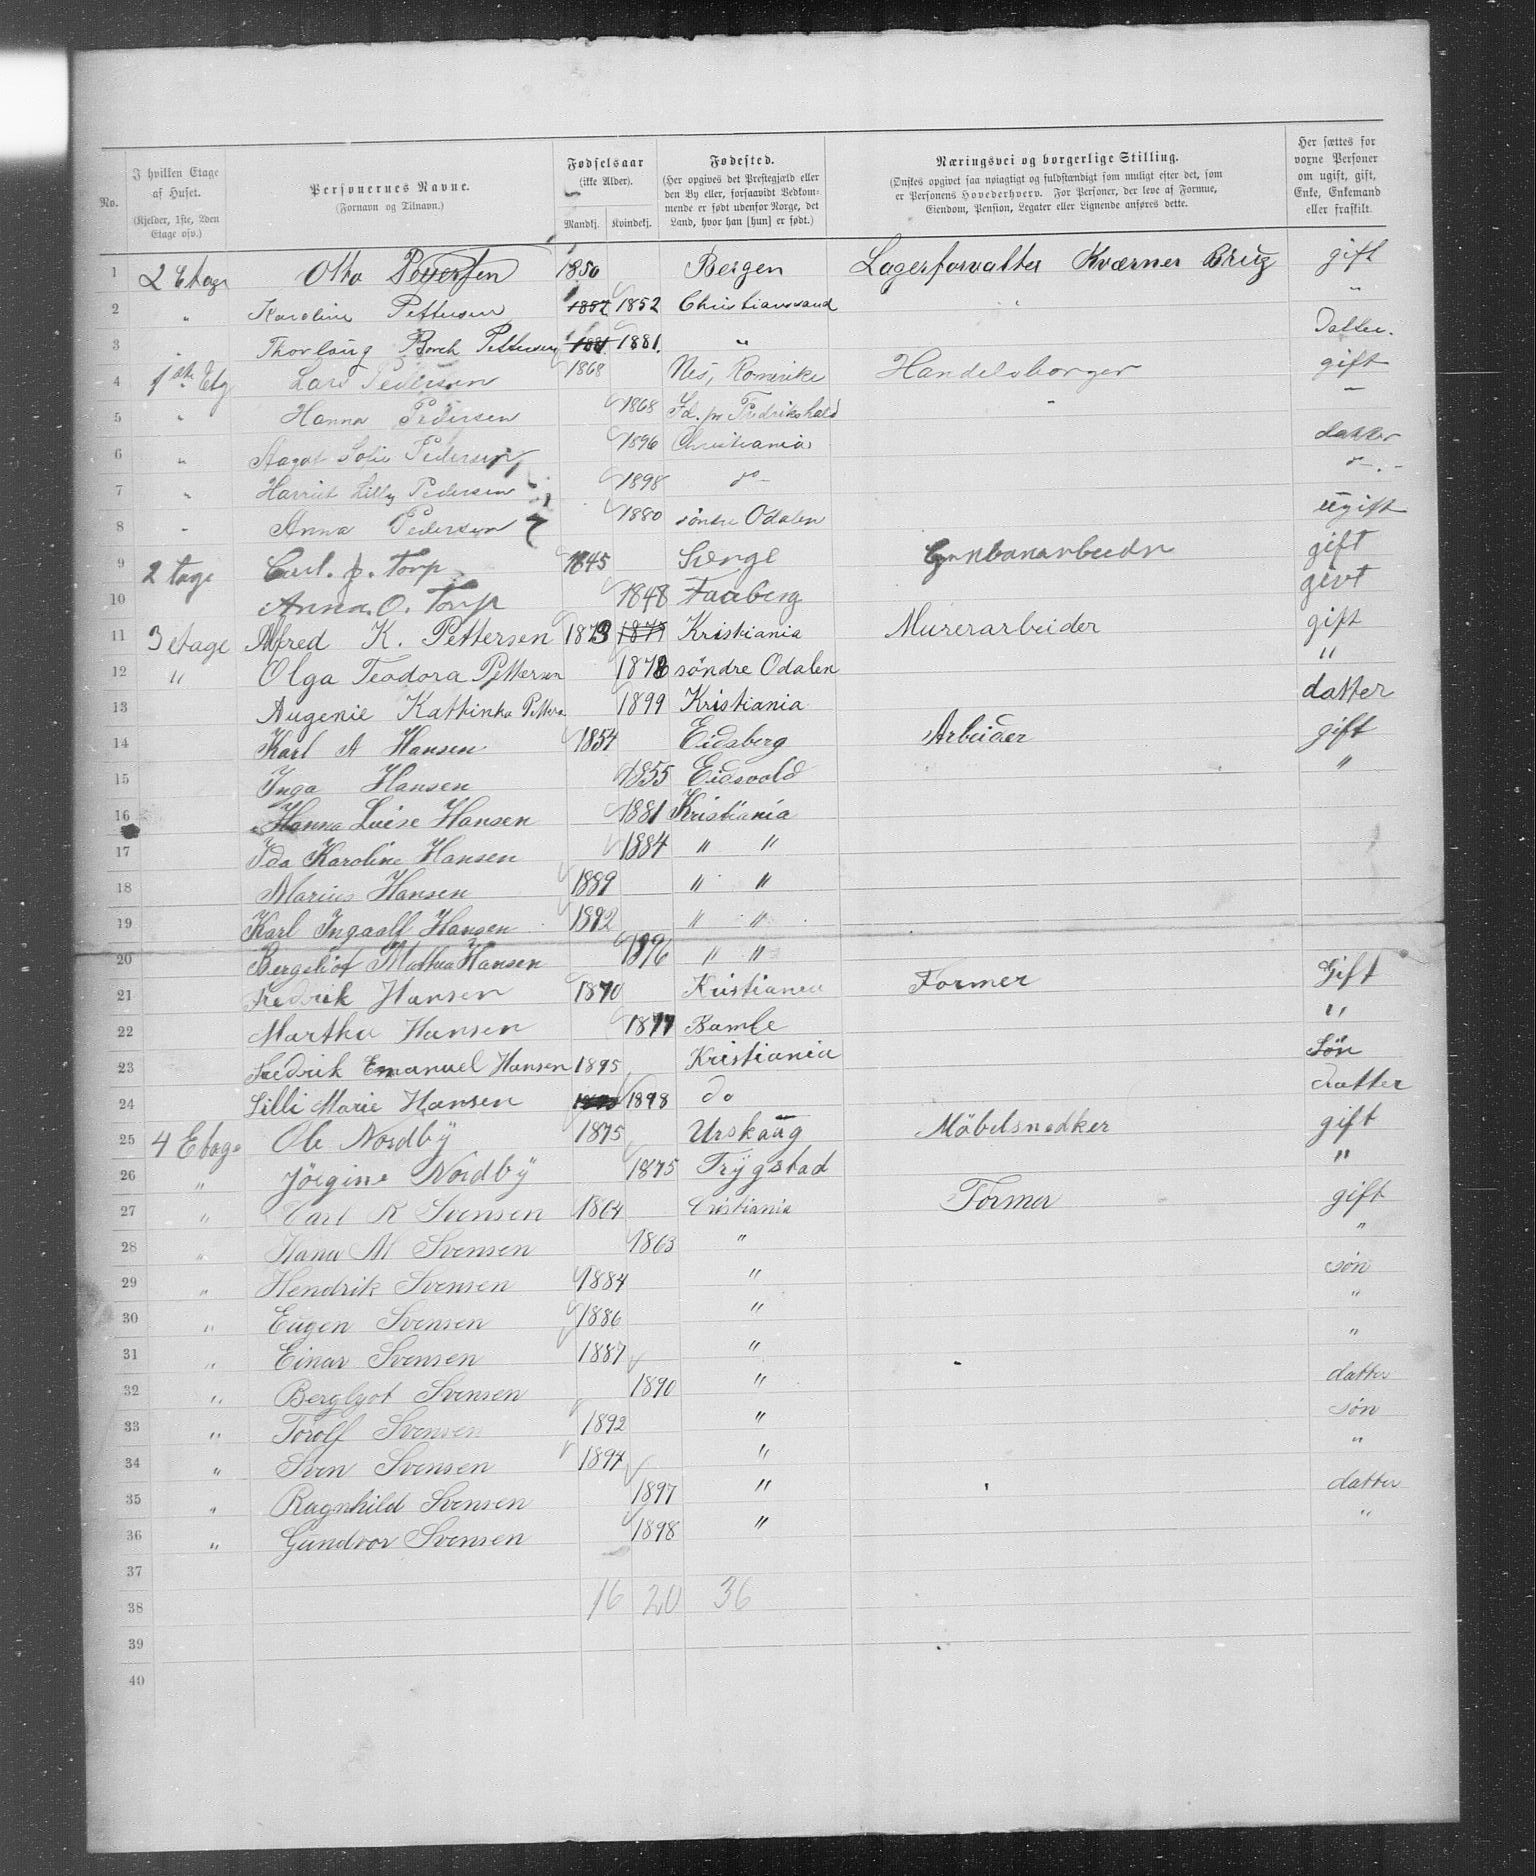 No. | I hvilken Etage af Huset. (Kjelder, 1ste, 2den Etage osv.) | Personernes Navne. (Fornavn og Tilnavn.) | Fødselsaar (ikke Alder). Mandkj. | Kvindekj. | Fødested. (Her opgives det Prestegjæld eller den By eller, forsaavidt Vedkommende er født udenfor Norge, det Land, hvor han [hun] er født.) | Næringsvei og borgerlige Stilling. (Ønskes opgivet saa nøiagtigt og fuldstændigt som muligt efter det, som er Personens Hovederhverv. For Personer, der leve af Formue, Eiendom, Pension, Legater eller Lignende anføres dette. | Her sættes for voxne Personer om ugift, gift, Enke, Enkemand eller fraskilt.
1 2 Etage Otto Pettersen 1850 Bergen Lagerforvalter Kværner Brug gift
2 " Karoline Pettersen 1852 Christianssand "
3 Thorlaug Borch Pettersen 1881. " Datter.
4 1ste Etg Lars Pedersen 1868 Nes, Romerike Handelsborger gift
5 " Hanna Pedersen 1868 Id. pr Fredrikshald -
6 " Aagot Sofie Pedersen 1896 Christiania datter
7 " Harriet Lilly Pedersen 1898 do -
8 Anna Pedersen 1880 søndre Odalen ugift
9 2 tage Carl. J. Torp 1845 gift
10 Anna. O. Torp 1848 Faaberg givt
11 3 etage Alfred K. Pettersen 1873 Kristiania Murerarbeider gift
12 " Olga Teodora Pettersen 1878 søndre Odalen "
13 Augenie Kattinka Petters 1899 Kristiania datter
14 Karl A Hansen 1854 Eidsberg Arbeider gift
15 Inga Hansen 1855 Eidsvold "
16 Hanna Luise Hansen 1881 Kristiania
17 Ida Karoline Hansen 1884 " "
18 Marius Hansen 1889 " "
19 Karl Ingaalf Hansen 1892 " "
20 Bergsliot Mathea Hansen 1896 " "
21 Fredrik Hansen 1870 Kristiania Former Gift
22 Martha Hansen 1877 Bamle "
23 Fredrik Emanuel Hansen 1895 Kristiania Søn
24 Lilli Marie Hansen 1898 do datter
25 4 Etage Ole Nordby 1875 Urskaug Möbelsnedker gift
26 " Jörgine Nordby 1875 Trygstad "
27 " Carl R Svensen 1864 Cristiania Former gift
28 " Hana M Svensen 1863 " "
29 " Hendrik Svensen 1884 " søn
30 " Eugen Svensen 1886 " "
31 " Einar Svensen 1887 " "
32 " Berglyot Svensen 1890 " datter
33 " Torolf Svensen 1892 " søn
34 " Sven Svensen 1894 " "
35 " Ragnhild Svensen 1897 " datter
36 " Gundvor Svensen 1898 " "
37
38 16 20 36
39
40